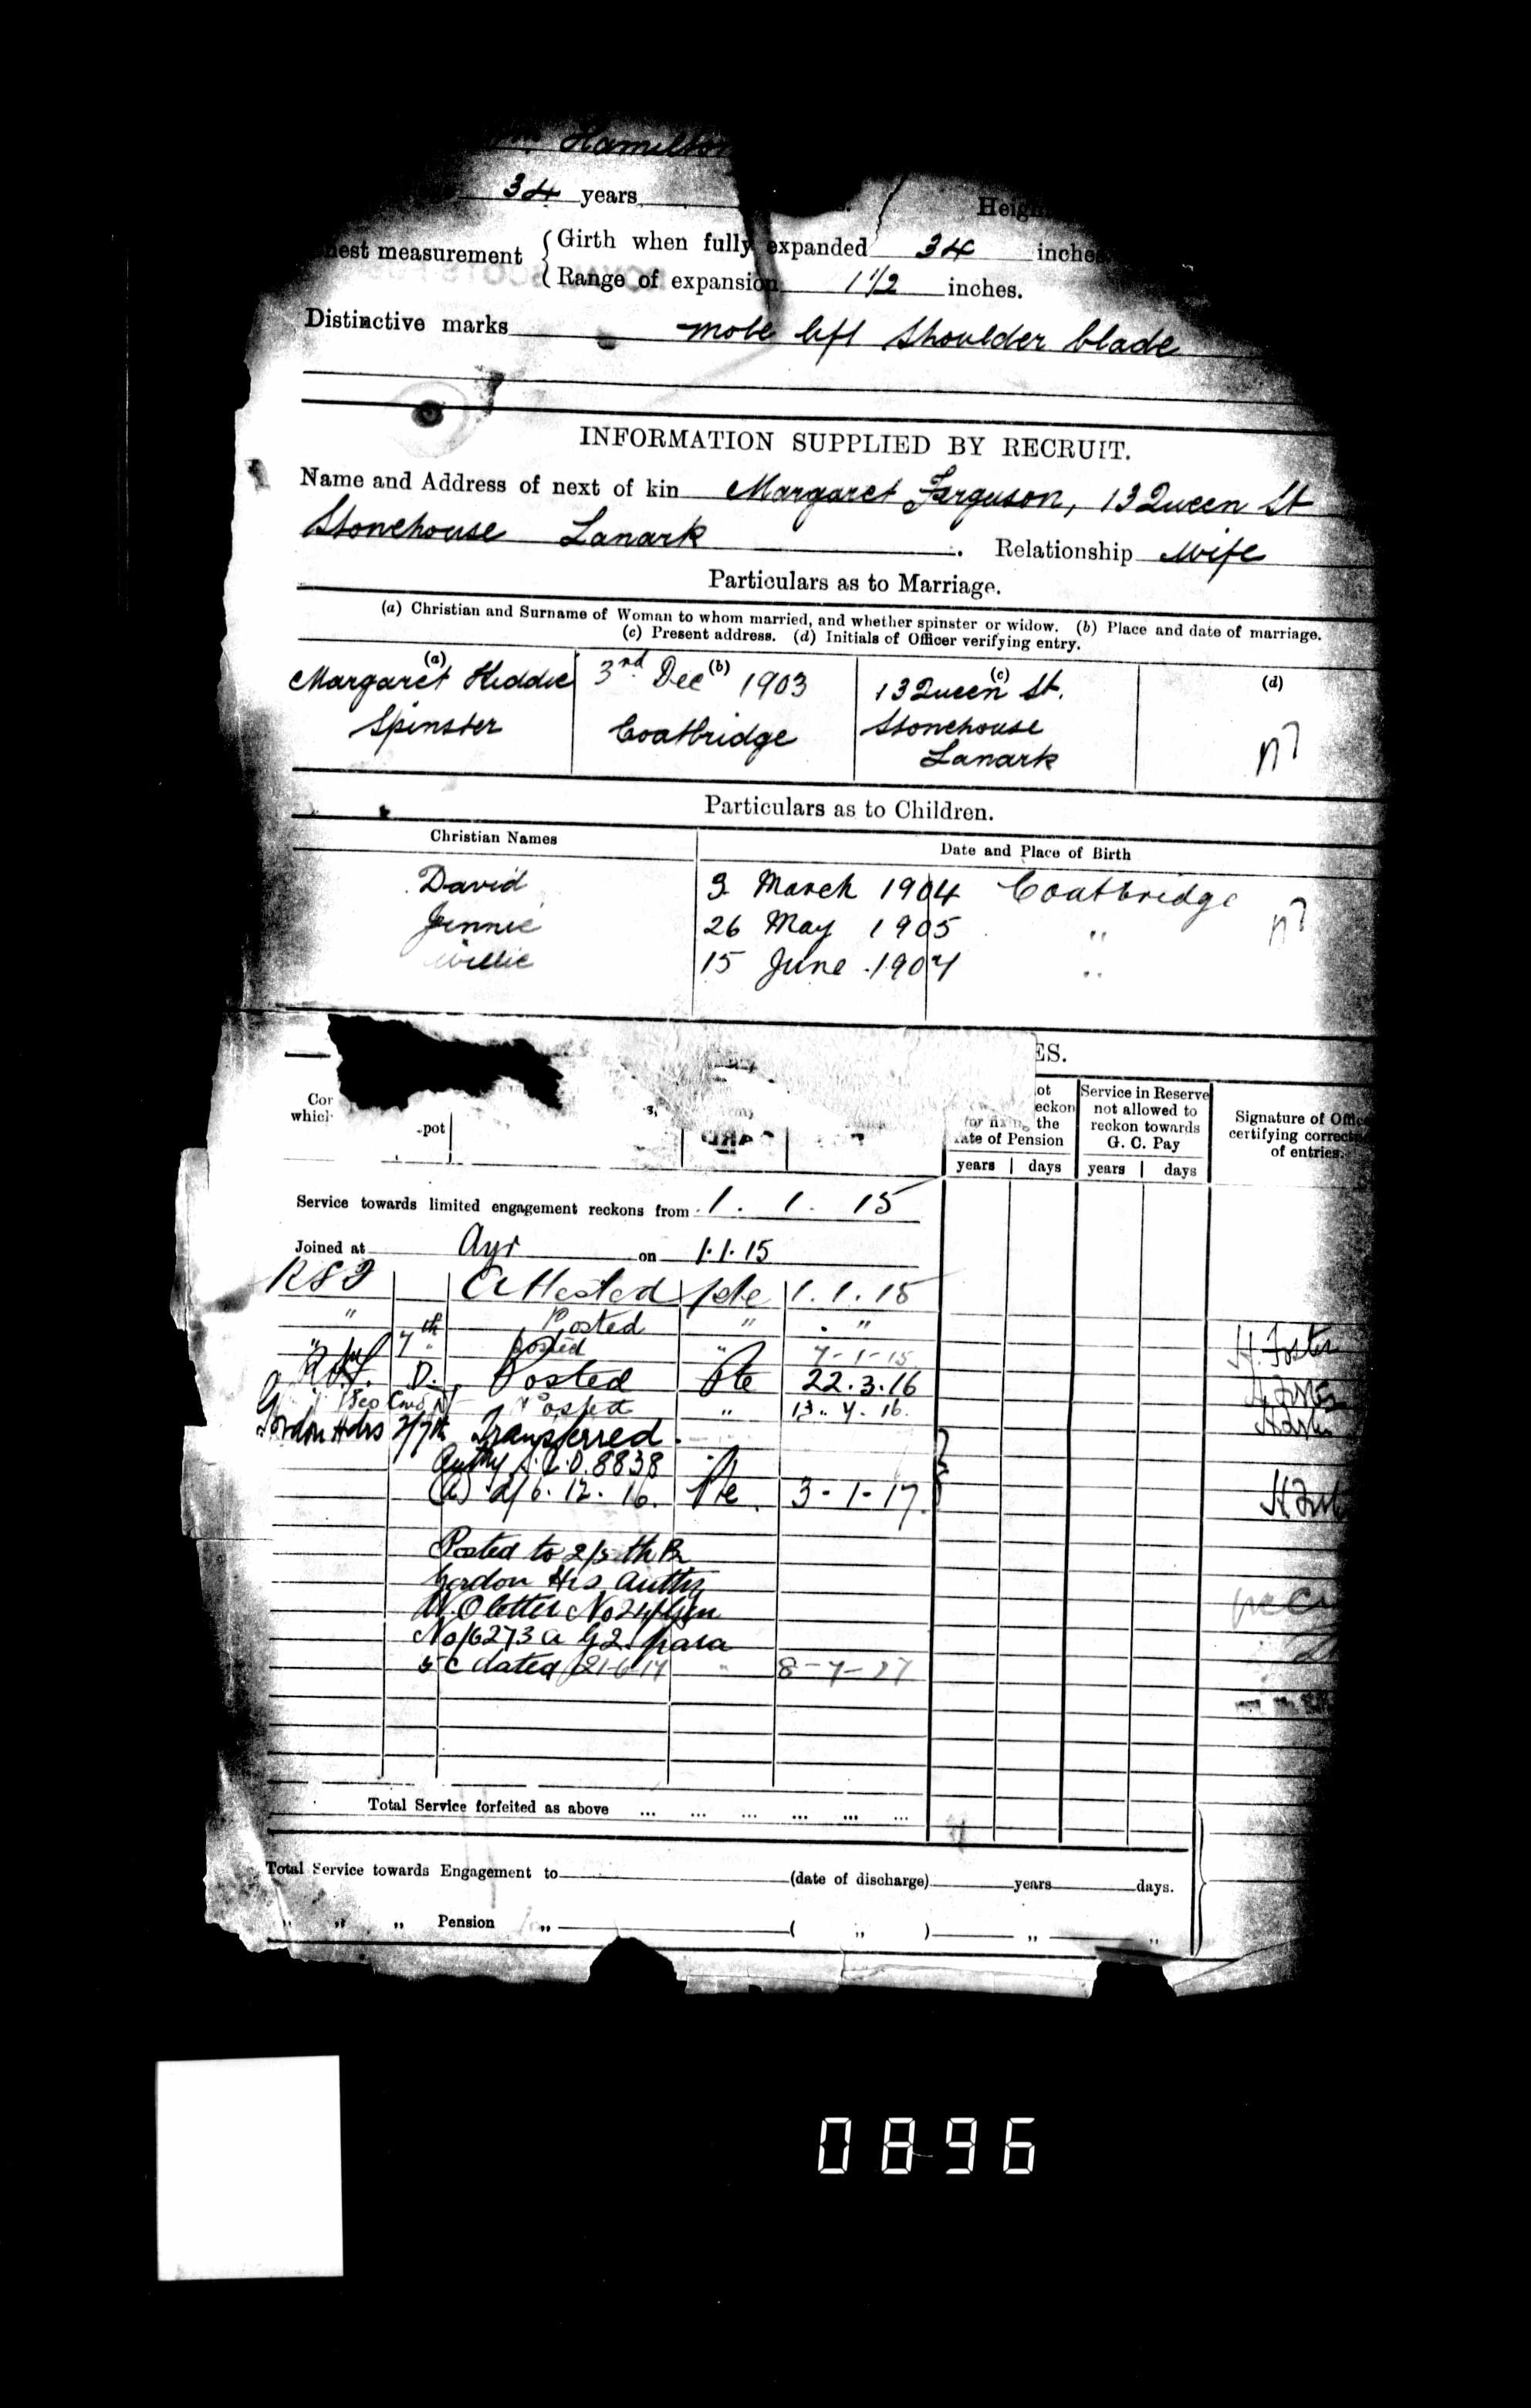 Hamilton
34 years Heig
hest measurement { Girth when fully expanded 34 inches
Range of expansion 1 1/2 inches.
Distinctive marks mole left shoulder blade
INFORMATION SUPPLIED BY RECRUIT.
Name and Address of next of kin Margaret Ferguson, 13 Queen St
Stonehouse Lanark . Relationship Wife
Particulars as to Marriage.
(a) Christian and Surname of Woman to whom married, and whether spinster or widow. (b) Place and date of marriage.
(c) Present address. (d) Initials of Officer verifying entry.
(a) (b) (c) (d)
Margaret Heddie 3rd Dec 1903 13 Queen St.
Spinster Coatbridge Stonehouse
Lanark
Particulars as to Children.
Christian Names Date and Place of Birth
David 3 March 1904 Coatbridge
Jennie 26 May 1905 "
Willie 15 June 1907 "
ES.
Cor
which
pot
ot
eckon
for fixing the
rate of Pension
years days
Service in Reserve
not allowed to
reckon towards
G. C. Pay
years days
Signature of Offic
certifying correct
of entries.
Service towards limited engagement reckons from 1. 1. 15
Joined at Ayr on 1.1.15
RSF Attested pte 1.1.15
" Posted " "
" 7th posted " 7-1-15 H. Foster
D. Posted Pte 22.3.16
Posted " 13.7.16.
Gordon Hdrs 2/7th Transferred
Authy 8838
(A) d/6.12.16. Pte 3-1-17
Posted to 2/5th Bn
Gordon Hrs Authy
W.O letter No 24/Gen
No/6273 A G 2. para
5 C dated 21-6-17 " 8-7-17
Total Service forfeited as above ... ... ... ... ... ...
Total Service towards Engagement to (date of discharge) years days.
" " " Pension " ( " ) " "
0896